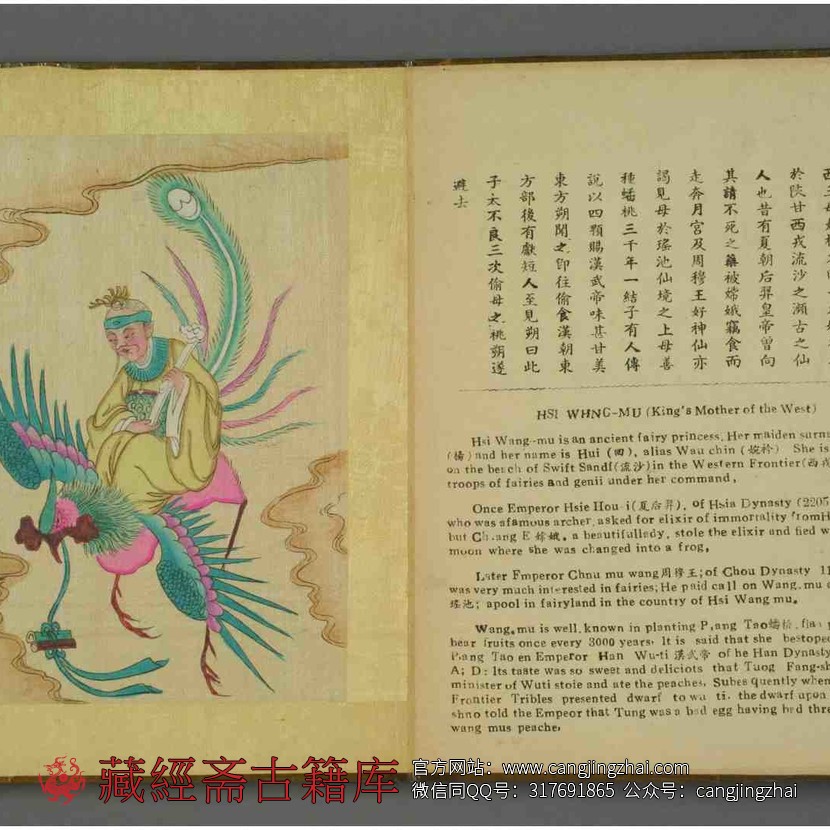 於陝甘西戎流沙之瀕古之仙
人也昔有夏朝后羿皇帝曾向
其請不死之藥被嫦娥竊食而
走奔月宮及周穆王好神仙亦
謁見母於瑤池仙境之上母善
種蟠桃三千年一結子有人傳
說以四顆賜漢武帝味甚甘美
東方朔聞之即往偷食漢朝東
方部後有獻短人至見朔曰此
子太不良三次偷母之桃朔遂
避去
HSI WHNG-MU (King's Mother of the West)
Hsi Wang-mu is an ancient fairy princess. Her maiden surna
(楊) and her name is Hui (回), alias Wau chin (婉衿) She is
on the beach of Swift Sandf(流沙)in the Western Frontier(西戎
troops of fairies and genii under her command,
Once Emperor Hsie Hou-i(夏后羿), of Hsia Dynasty (2205
who was afamous archer, asked for elixir of immortality fromH
but Ch.ang E 嫦娥, a beautifullady, stole the elixir and fled w
moon where she was changed into a frog,
Later Emperor Chnu mu wang周穆王;of Chou Dynasty 11
was very much interested in fairies; He paid call on Wang.mu
瑤池; apool in fairyland in the country of Hsi Wang mu.
Wang.mu is well.known in planting P.ang Tao蟠桃.
bear fruits once every 3000 years. It is said that she bestoped
P.ang Tao en Emperor Han Wu-ti 漢武帝 of he Han Dynasty
A; D: Its taste was so sweet and deliciots that Tuog Fang-sh
minister of Wuti stoie and ate the peaches. Subes quently when
Frontier Tribles presented dwarf to wu ti. the dwarf upon
shno told the Empeor that Tung was a bsd egg having bsd thre
wang mus peache,
藏經斋古籍库
官方网站：www.cangjingzhai.com
微信同QQ号：317691865 公众号：cangjingzhai